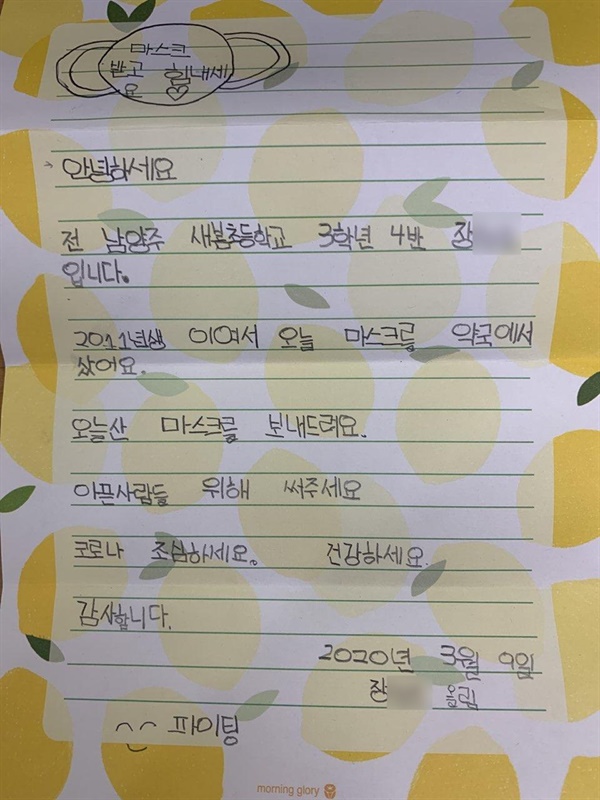 마스크
받고 힘내세
요 ♡
안녕하세요
전 남양주 새봄초등학교 3학년 4반 장
입니다.
2011년생 이여서 오늘 마스크를 약국에서
샀어요.
오늘산 마스크를 보내드려요.
아픈사람들 위해 써주세요
코로나 조심하세요. 건강하세요.
감사합니다.
2020년 3월 9일
장 올림
파이팅
morning glory